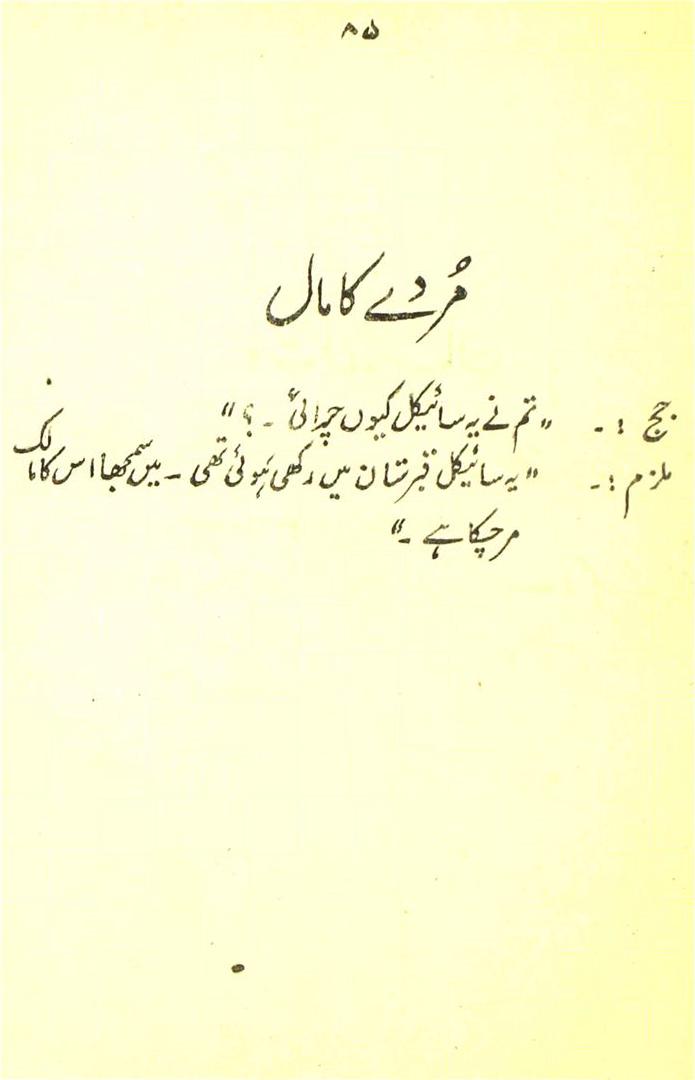 ۸۵
مُردے کا مال
جج :۔ "تم نے یہ سائیکل کیوں چرائی ۔؟"
ملزم :۔ "یہ سائیکل قبرستان میں رکھی ہوئی تھی ۔ میں سمجھا اس کا مالک
مرچکا ہے ۔"